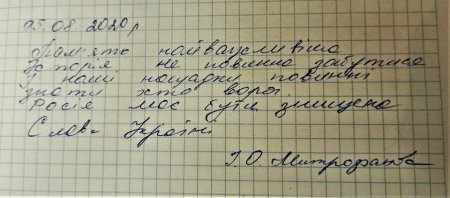 05.08 2020 р
Пам'ять найважливіша
Історія не повинна забутися
І наші нащадки повинні
знати хто ворог.
Росія має бути знищена
Слава Україні
І.О. Митрофанова